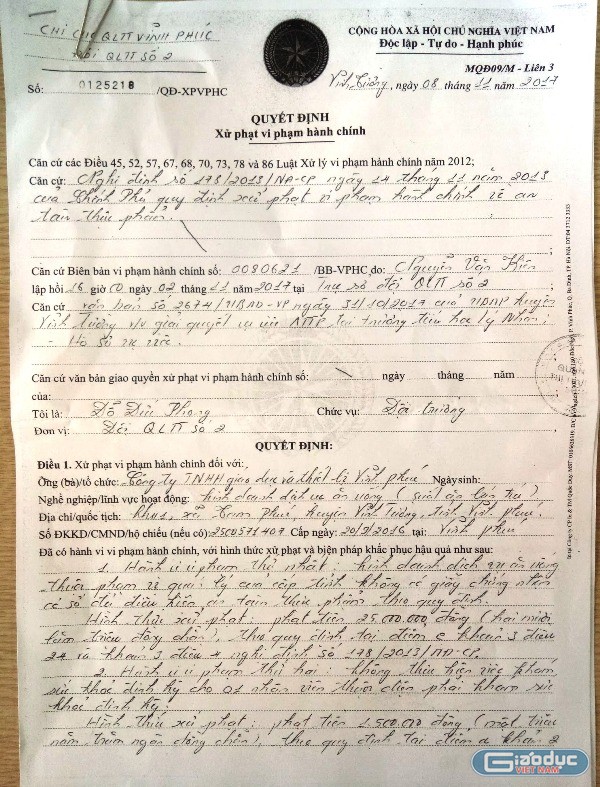 CHI CỤC QLTT VĨNH PHÚC
ĐỘI QLTT SỐ 2
Số: 0125218 /QĐ-XPVPHC
CỘNG HÒA XÃ HỘI CHỦ NGHĨA VIỆT NAM
Độc lập - Tự do - Hạnh phúc
MQĐ09/M - Liên 3
Vĩnh Tường, ngày 08 tháng 11 năm 2017
QUYẾT ĐỊNH
Xử phạt vi phạm hành chính
Căn cứ các Điều 45, 52, 57, 67, 68, 70, 73, 78 và 86 Luật Xử lý vi phạm hành chính năm 2012;
Căn cứ: Nghị định số 178/2013/NĐ-CP ngày 14 tháng 11 năm 2013
của Chính Phủ quy định xử phạt vi phạm hành chính về an
toàn thực phẩm.
Căn cứ Biên bản vi phạm hành chính số: 0080621 /BB-VPHC do: Nguyễn Văn Kiên
lập hồi 16 giờ 00 ngày 02 tháng 11 năm 2017 tại Trụ sở đội QLTT số 2
Căn cứ văn bản số 2674/UBND-VP ngày 31/10/2017 của UBND huyện
Vĩnh Tường v/v giải quyết vụ việc ATTP tại trường tiểu học Lý Nhân.
- Hồ sơ vụ việc.
Căn cứ văn bản giao quyền xử phạt vi phạm hành chính số: ngày tháng năm
của:
Tôi là: Đỗ Đức Phong Chức vụ: Đội trưởng
Đơn vị: Đội QLTT số 2
QUYẾT ĐỊNH:
Điều 1. Xử phạt vi phạm hành chính đối với:
Ông (bà)/tổ chức: Công ty TNHH giáo dục và thiết bị Vĩnh Phúc Ngày sinh:
Nghề nghiệp/lĩnh vực hoạt động: kinh doanh dịch vụ ăn uống (suất ăn bán trú)
Địa chỉ/quốc tịch: khu 1, xã huyện Vĩnh Tường, tỉnh Vĩnh Phúc.
Số ĐKKD/CMND/hộ chiếu (nếu có): 2500571407 Cấp ngày: 2016 tại: Vĩnh Phúc
Đã có hành vi vi phạm hành chính, với hình thức xử phạt và biện pháp khắc phục hậu quả như sau:
1. Hành vi vi phạm thứ nhất: kinh doanh dịch vụ ăn uống
thuộc phạm vi quản lý của cấp tỉnh không có giấy chứng nhận
cơ sở đủ điều kiện an toàn thực phẩm theo quy định.
Hình thức xử phạt: phạt tiền 25.000.000 đồng (hai mươi
lăm triệu đồng chẵn), theo quy định tại điểm c khoản 3 điều
24 và khoản 3 điều 4 nghị định số 178/2013/NĐ-CP.
2. Hành vi vi phạm thứ hai: không thực hiện việc khám
sức khỏe định kỳ cho 01 nhân viên thuộc diện phải khám sức
khỏe định kỳ;
Hình thức xử phạt: phạt tiền 1.500.000 đồng (một triệu
năm trăm ngàn đồng chẵn), theo quy định tại điểm a khoản 2
Giáo dục
VIỆT NAM